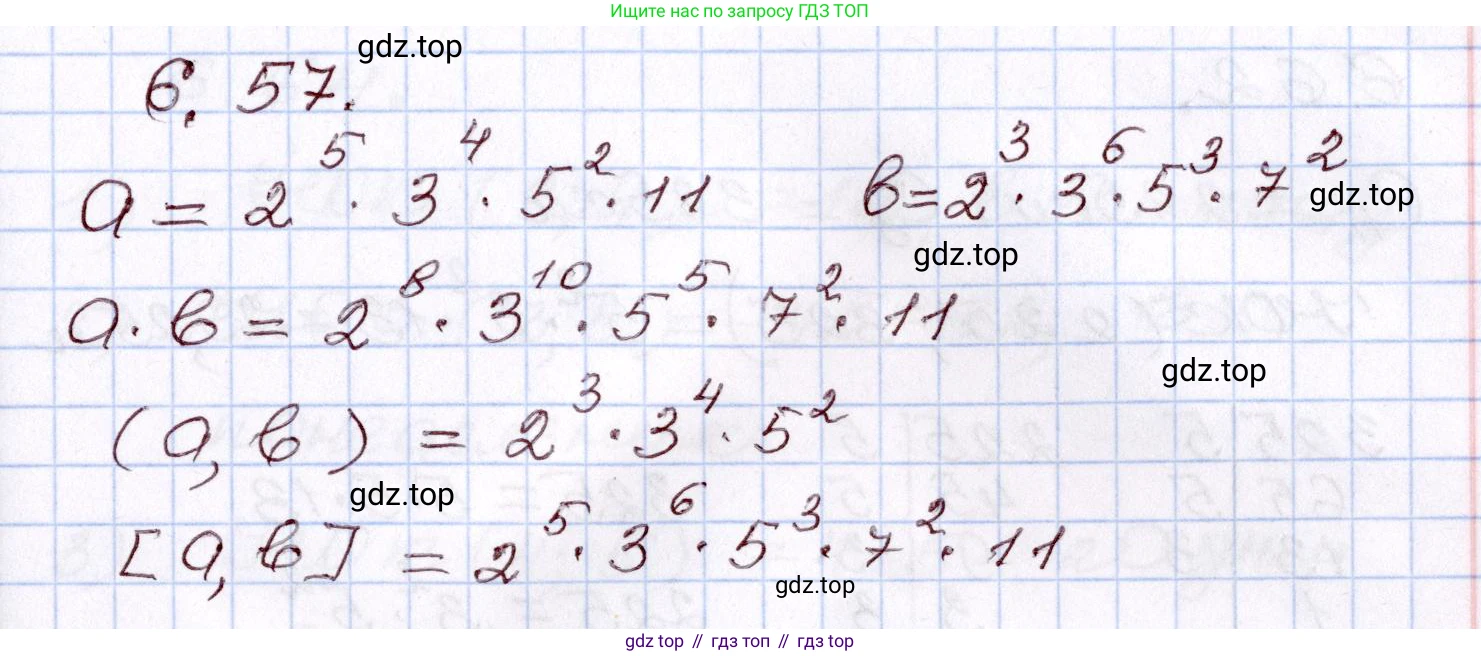 Ищите нас по запросу ГДЗ ТОП
gdz.top
6.57.
a = 2⁵ · 3⁴ · 5² · 11 в = 2³ · 3⁶ · 5³ · 7²
gdz.top
gdz.top
a · в = 2⁸ · 3¹⁰ · 5⁵ · 7² · 11
gdz.top
(a, в) = 2³ · 3⁴ · 5²
gdz.top
[a, в] = 2⁵ · 3⁶ · 5³ · 7² · 11
gdz.top
gdz top // гдз топ // гдз top